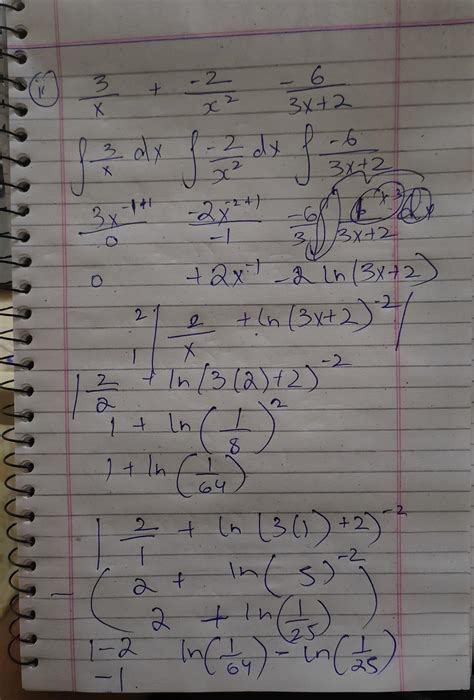 ii 3/x + -2/x² -6/3x+2
∫ 3/x dx ∫ -2/x² dx ∫ -6/3x+2
3x^(-1+1)/0 -2x^(-2+1)/-1 -6/3 ∫ 3x+2
0 + 2x⁻¹ - 2 ln(3x+2)
2 1 | 2/x + ln(3x+2)⁻² |
| 2/2 + ln(3(2)+2)⁻²
1 + ln(1/8)²
1 + ln(1/64)
| 2/1 + ln(3(1)+2)⁻²
- ( 2 + ln(5)⁻² )
2 + ln(1/25)
1-2 ln(1/64) - ln(1/25)
-1